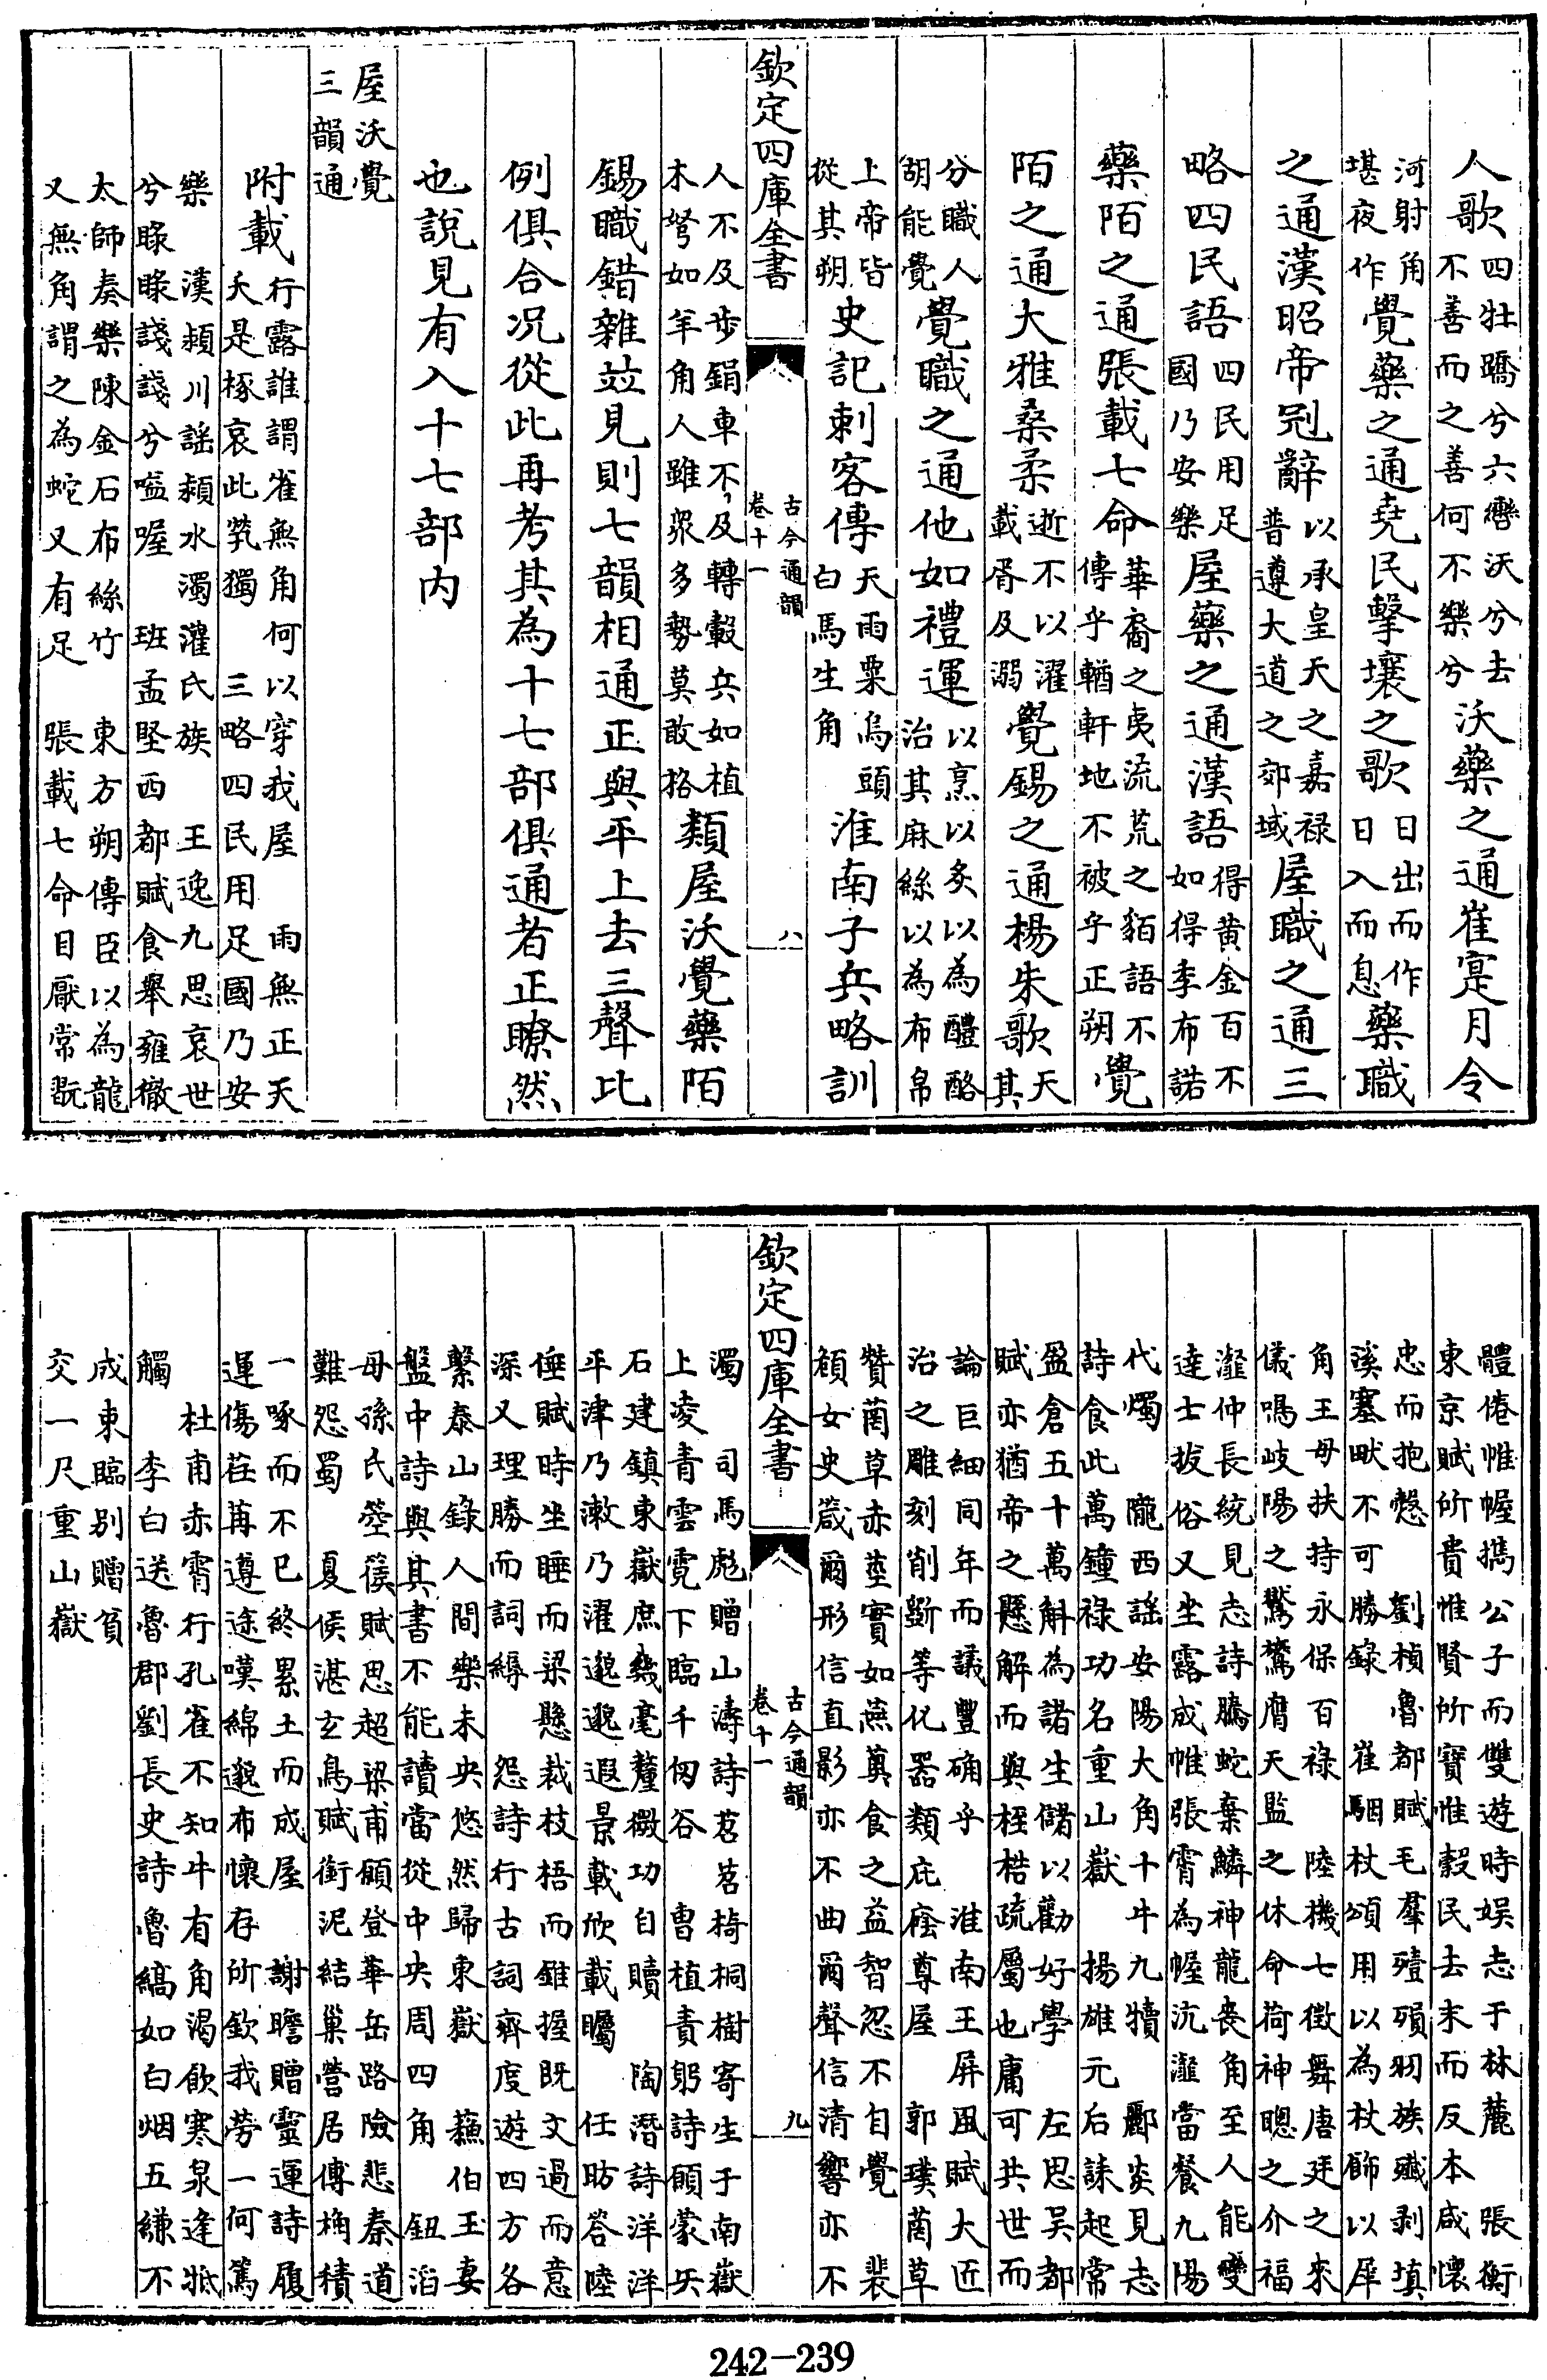 人歌四牡蹻兮六轡沃兮去不善而之善何不樂兮沃藥之通崔寔月令
河射角堪夜作覺藥之通堯民擊壤之歌日出而作日入而息藥職
之通漢昭帝冠辭以承皇天之嘉禄普遵大道之郊域屋職之通三
略四民語四民用足國乃安樂屋藥之通漢語得黄金百不如得李布諾
藥陌之通張載七命華裔之夷流荒之貊語不傳乎輶軒地不被乎正朔覺
陌之通大雅桑柔逝不以濯載胥及溺覺錫之通楊朱歌天其
分職人胡能覺覺職之通他如禮運以烹以炙以為醴酪治其麻絲以為布帛
上帝皆從其朔史記刺客傳天雨粟烏頭白馬生角淮南子兵略訓
欽定四庫全書
古今通韻卷十一
八
人不及步鋗車不及轉轂兵如植木弩如羊角人雖衆多勢莫敢格類屋沃覺藥陌
錫職錯雜竝見則七韻相通正與平上去三聲比
例俱合况從此再考其為十七部俱通者正瞭然
也說見有入十七部内
屋沃覺三韻通
附載行露誰謂雀無角何以穿我屋 雨無正天夭是椓哀此煢獨 三略四民用足國乃安
樂 漢潁川謡潁水濁灌氏族 王逸九思哀世兮睩睩諓諓兮嗌喔 班孟堅西都賦食舉雍徹
太師奏樂陳金石布絲竹 東方朔傳臣以為龍又無角謂之為蛇又有足 張載七命目厭常翫
體倦帷幄攜公子而雙遊時娱志于林麓 張衡東京賦所貴惟賢所寶惟穀民去末而反本咸懷
忠而抱慤 劉楨魯都賦毛羣殪殞羽族殲剥填溪塞畎不可勝錄 崔駰杖頌用以為杖飾以犀
角王母扶持永保百禄 陸機七徵舞唐廷之來儀鳴岐陽之鸑鷟膺天監之休命荷神聰之介福
瀣仲長統見志詩騰蛇棄鱗神龍喪角至人能變達士拔俗又坐露成帷張霄為幄沆瀣當餐九陽
代燭 隴西謡安陽大角十牛九犢 酈炎見志詩食此萬鐘禄功名重山嶽 揚雄元后誄起常
盈倉五十萬斛為諸生儲以勸好學 左思吴都賦亦猶帝之懸解而與桎梏疏屬也庸可共世而
論巨細同年而議豐确乎 淮南王屏風賦大匠治之雕刻削斵等化器類庇廕尊屋 郭璞䓘草
贊䓘草赤莖實如燕薁食之益智忽不自覺 裴頠女史箴爾形信直影亦不曲爾聲信清響亦不
欽定四庫全書
古今通韻卷十一
九
濁 司馬彪贈山濤詩苕苕椅桐樹寄生于南嶽上凌青雲霓下臨千仞谷 曹植責躬詩願蒙矢
石建鎮東嶽庶幾毫釐微功自贖 陶潛詩洋洋平津乃漱乃濯邈邈遐景載欣載矚 任昉答陸
倕賦時坐睡而梁懸裁枝梧而錐握既文過而意深又理勝而詞縟 怨詩行古詞齊度遊四方各
繫泰山錄人間樂未央悠然歸東嶽 蘇伯玉妻盤中詩與其書不能讀當從中央周四角 鈕滔
母孫氏箜篌賦思超梁甫願登華岳路險悲秦道難怨蜀 夏侯湛玄鳥賦銜泥結巢營居傅桷積
一啄而不已終累土而成屋 謝瞻贈靈運詩履運傷荏苒遵途嘆綿邈布懷存所欽我勞一何篤
杜甫赤霄行孔雀不知牛有角渴飲寒泉逢牴觸 李白送魯郡劉長史詩魯縞如白烟五縑不
成束臨别贈貧交一尺重山嶽
242-239